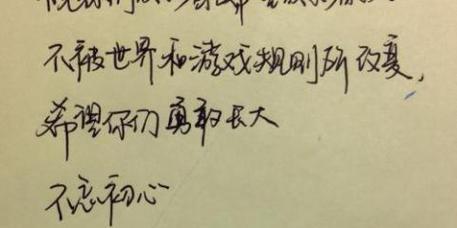 不被世界和游戏规则所改变,
希望你们勇敢长大
不忘初心